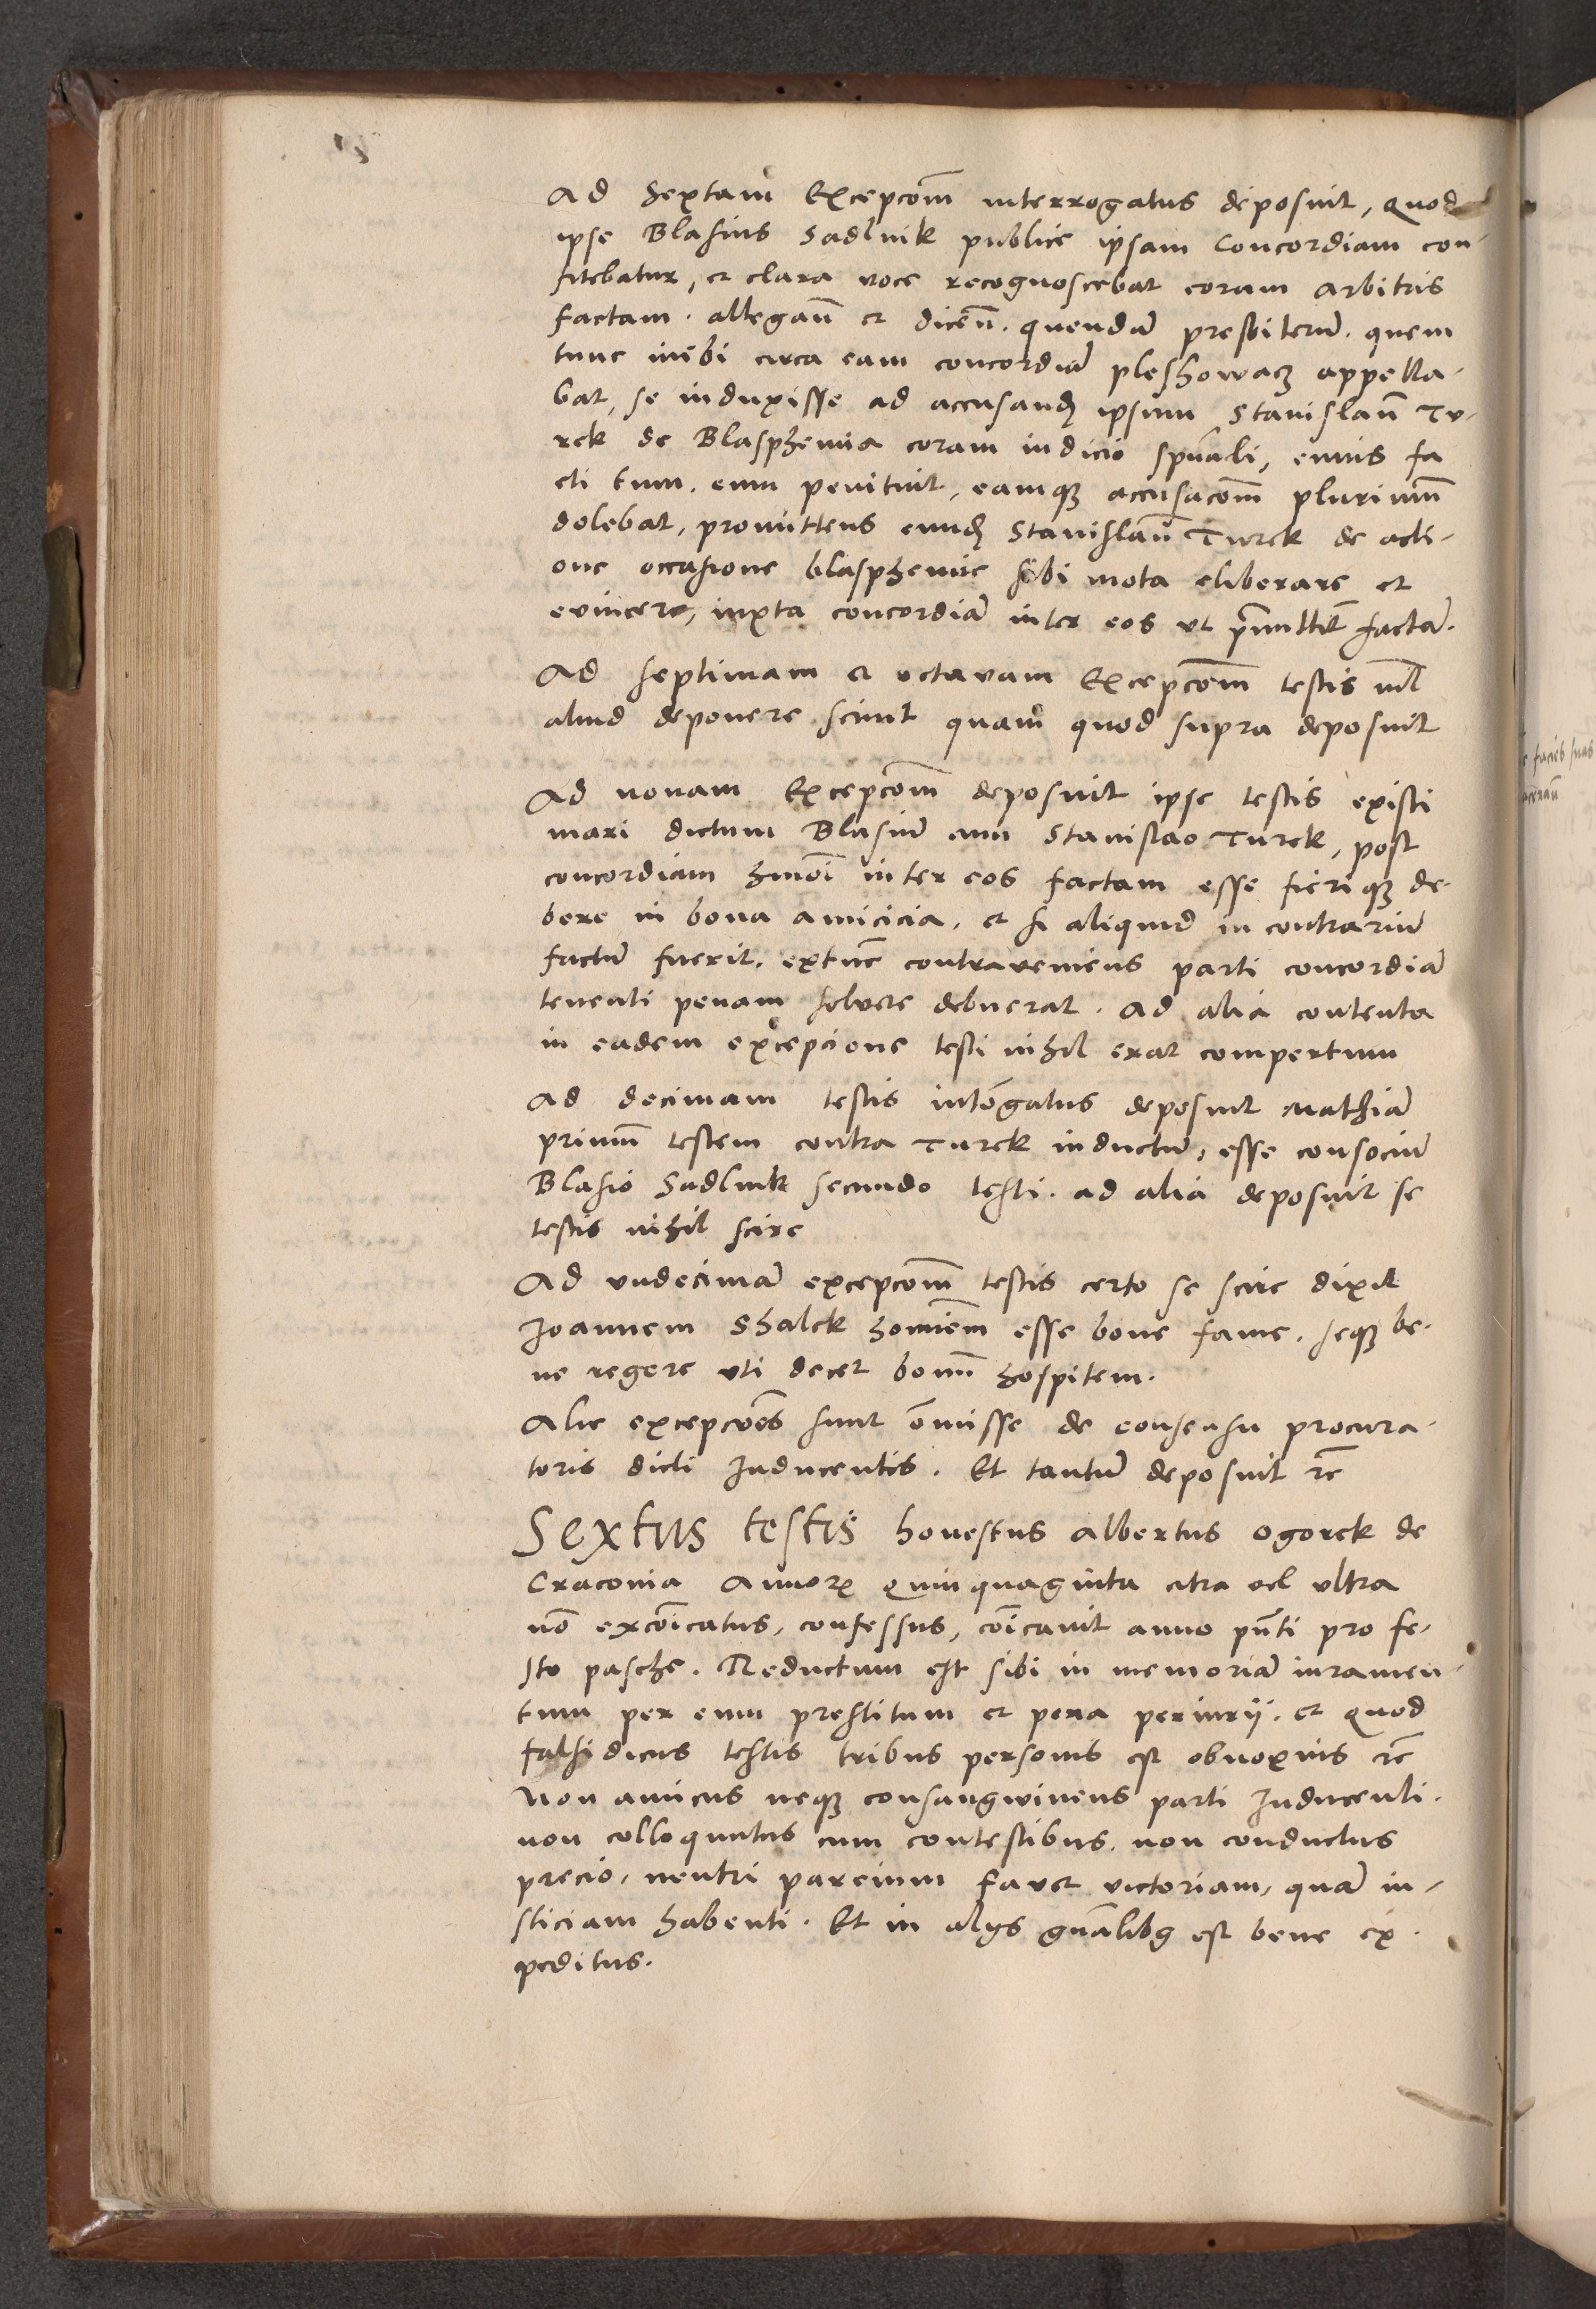 Ad Sextam Excepcom̄ interrogatus deposuit, quod
ipse Blasius Sadlnik publice ipsam Concordiam con-
fitebatur, et clara voce recognoscebat coram arbitris
factam. allegan̄ et dicen̄. quendā presbiterū. quem
tunc inibi circa eam concordiā pleshowacz appella-
bat, se induxisse ad accusandꝫ ipsum Stanislaū Tv-
rck de Blasphemia coram iudicio spūali, cuius fa
cti tum. eum penituit, eamqꝫ accusacom̄ plurimū
dolebat, promittens eundꝫ Stanislaū Turck de acti-
one occasione blasphemie sibi mota eliberare et
evincere, iuxta concordiā inter eos ut p̄mittit̄ factā.
Ad septimam et octavam Excepcom̄ testis nil̄
aliud deponere sciuit quam quod supra deposuit
Ad nonam Excepcom̄ deposuit ipse testis existi
mari dictum Blasiū cum Stanislao Turck, post
concordiam hmōi inter eos factam esse fieriqꝫ de-
bere in bona amicicia. et si aliquid in contrariū
factū fuerit. extūc contraveniens parti concordiā
tenenti penam solvere debuerat. Ad alia contenta
in eadem excepcione testi nihil erat compertum
Ad decimam testis intōgatus deposuit Mathiā
primū testem contra Turck inductū, esse consociū
Blasio Sadlnik secundo testi. ad alia deposuit se
testis nihil scire
Ad undecimā excepcom̄ testis certo se scire dixit
Joannem Shalek homīem esse bone fame. seqꝫ be-
ne regere uti decet bonū hospitem.
Alie excepcōes sunt ōmisse de consensu procura-
toris dicti Inducentis. Et tantū deposuit rc̄
Sextus testis honestus Albertus Ogorek de
Cracovia Annorꝝ quinquaginta citra vel ultra
nō excōicatus, confessus, cōicavit anno pn̄ti pro fe-
sto pasche. Reductum est sibi in memoriā iuramen-
tum per eum prestitum et pena periurij. et quod
falsidicus testis tribus personis est obnoxius rc̄
Non amicus neqꝫ consangwineus parti Inducenti.
non colloqutus cum contestibus. non conductus
precio, neutri parcium favet victoriam, quā iu-
sticiam habenti. Et in alijs gn̄alibꝫ est bene ex-
peditus.